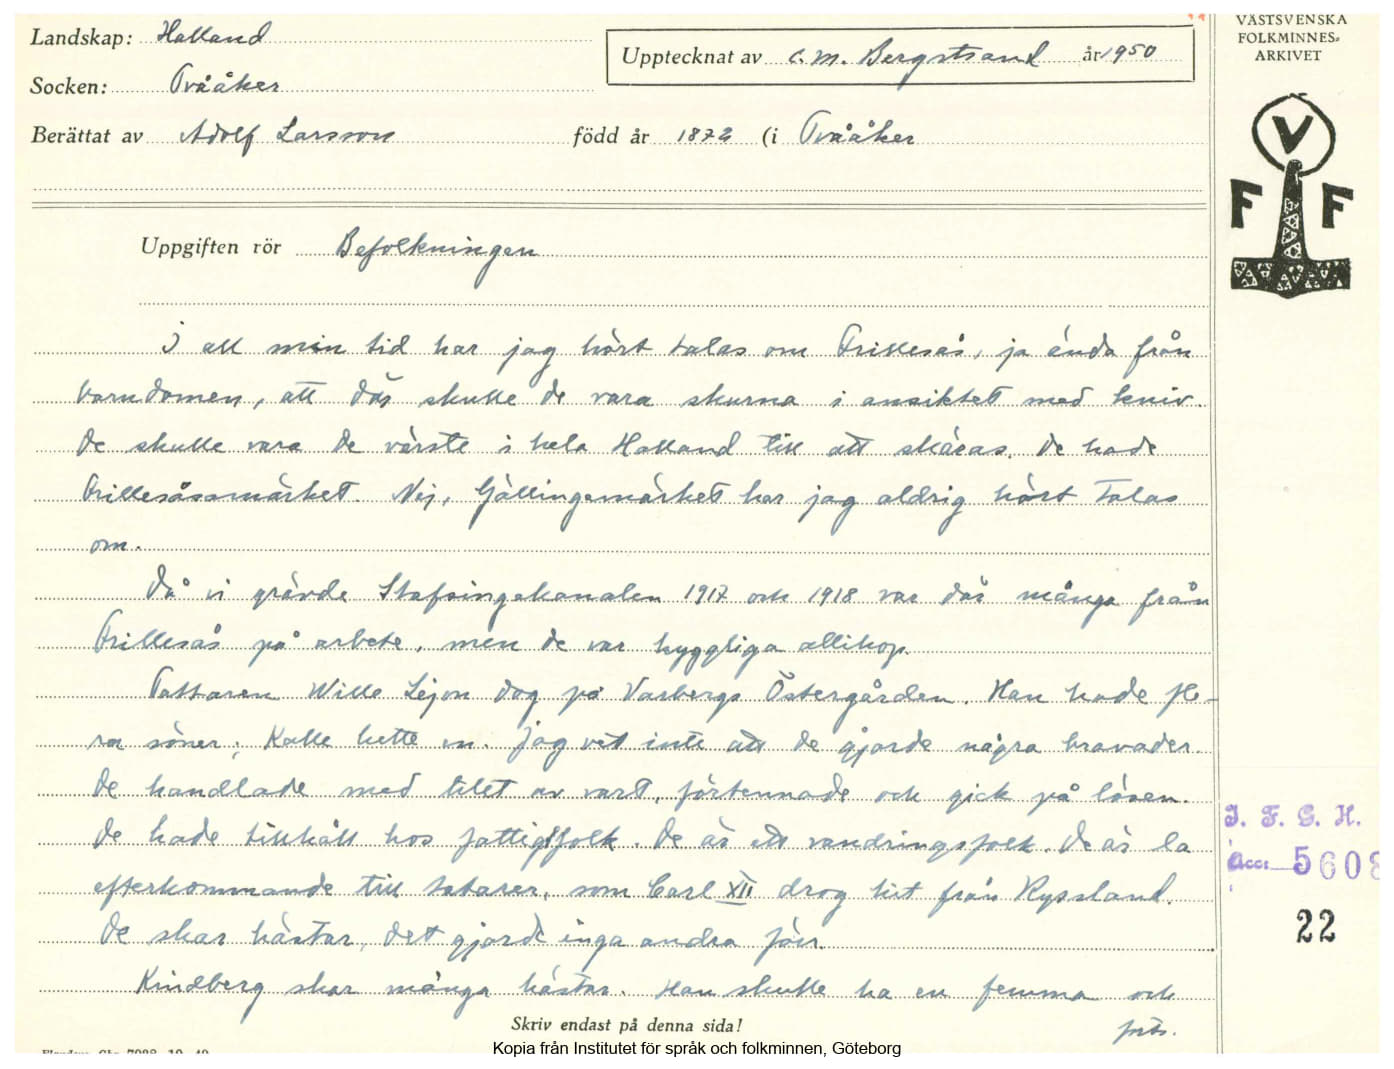 VÄSTSVENSKA
FOLKMINNES-
ARKIVET
Landskap: Halland
Upptecknat av C. M. Bergstrand år 1950
Socken: Tvååker
Berättat av Adolf Larsson född år 1872 (i Tvååker
V
F F
Uppgiften rör Befolkningen
I all min tid har jag hört talas om Frillesås, ja ända från
barndomen, att där skulle de vara skurna i ansiktet med kniv.
De skulle vara de värste i hela Halland till att skäras. De hade
Frillesåsamärket. Nej, Gällingemärket har jag aldrig hört talas
om.
Då vi grävde Stafsingekanalen 1917 och 1918 var där många från
Frillesås på arbete, men de var hyggliga allihop.
Tattaren Wille Lejon dog på Varbergs Östergården. Han hade fle-
ra söner; Kalle hette en. Jag vet inte att de gjorde några bravader.
De handlade med litet av vart, förtennade och gick på låsen.
De hade tillhåll hos fattigfolk. De är ett vandringsfolk. De är la
efterkommande till tatarer, som Carl XII drog hit från Ryssland.
De skar hästar, det gjorde inga andra förr.
Kindberg skar många hästar. Han skulle ha en femma och
forts.
I. F. G. H.
Acc: 5608
22
Skriv endast på denna sida!
Kopia från Institutet för språk och folkminnen, Göteborg